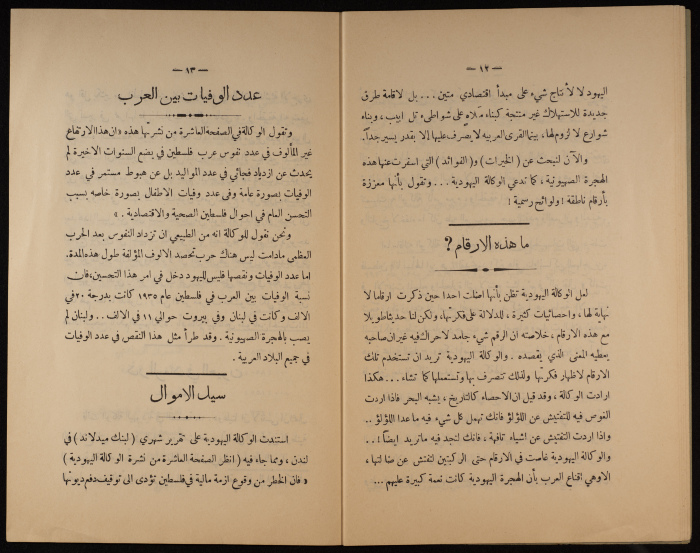 — ١٢ —
اليهود لا لأنتاج شيء على مبدأ اقتصادي متين... بل لاقامة طرق
جديدة للاستهلاك غير منتجة كبناء ملاه على شواطىء تل ابيب، وبناء
شوارع لا لزوم لها، بينما القرى العربيه لا يصرف عليها الا بقدر يسير جداً.
والآن لنبحث عن (الخيرات) و(الفوائد) التي اسفرت عنها هذه
الهجرة الصهيونية، كما تدعي الوكالة اليهودية... وتقول بأنها معززة
بأرقام ناطقة! ولوائح رسمية!
ما هذه الارقام؟
لعل الوكالة اليهودية تظن بأنها اضلت احدا حين ذكرت ارقاما لا
نهاية لها، واحصائيات كثيرة، للدلالة على فكرتها، ولكن لنا حديثا طويلا
مع هذه الارقام، خلاصته ان الرقم شيء جامد لا حراك فيه غير ان صاحبه
يعطيه المعنى الذي يقصده. والوكالة اليهودية تريد ان تستخدم تلك
الارقام لاظهار فكرتها ولذلك تتصرف بها وتستعملها كما تشاء... هكذا
ارادت الوكالة، وقد قيل ان الاحصاء كالتاريخ، يشبه البحر فاذا اردت
الغوص فيه للتفتيش عن اللؤلؤ فانك تهمل كل شيء فيه ما عدا اللؤلؤ..
واذا اردت التفتيش عن اشياء تافهة، فانك لتجد فيه ماتريد ايضاً!..
والوكالة اليهودية غاصت في الارقام حتى الركبتين لتفتش عن ضالتها،
الاوهي اقناع العرب بأن الهجرة اليهودية كانت نعمة كبيرة عليهم...
— ١٣ —
عدد الوفيات بين العرب
وتقول الوكالة في الصفحة العاشرة من نشرتها هذه «ان هذا الارتفاع
غير المألوف في عدد نفوس عرب فلسطين في بضع السنوات الاخيرة لم
يحدث عن ازدياد فجائي في عدد المواليد بل عن هبوط مستمر في عدد
الوفيات بصورة عامة وفى عدد وفيات الاطفال بصورة خاصه بسبب
التحسن العام في احوال فلسطين الصحية والاقتصادية.»
ونحن نقول للوكالة انه من الطبيعي ان تزداد النفوس بعد الحرب
العظمى مادامت ليس هناك حرب تحصد الالوف المؤلفة طول هذه المدة.
اما عدد الوفيات ونقصها فليس لليهود دخل في امر هذا التحسين، فان
نسبة الوفيات بين العرب في فلسطين عام ١٩٣٥ كانت بدرجة ٢٠ في
الالف وكانت في حوالي ١١ في الالف.. ولبنان لم
يصب بالهجرة الصهيونية. وقد طرأ مثل هذا النقص في عدد الوفيات
في جميع البلاد العربية.
سيل الاموال
استندت الوكالة اليهودية على تقرير شهري (لبنك ميدلاند) في
لندن، ومما جاء فيه (انظر الصفحة العاشرة من نشرة الوكالة اليهودية)
«فان الخطر من وقوع ازمة مالية في فلسطين تؤدى الى توقيف دفع ديونها